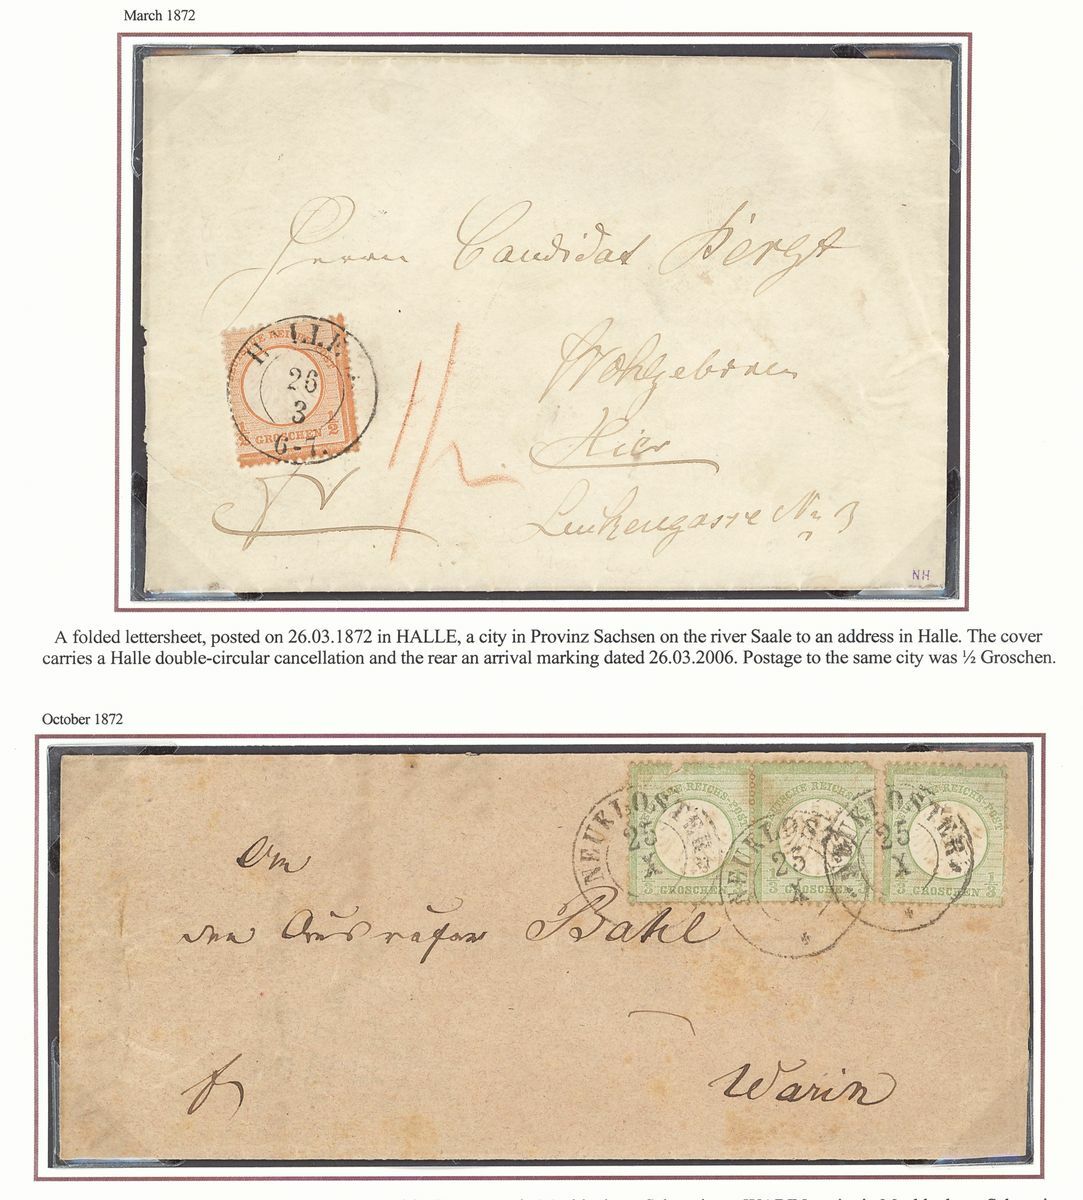 March 1872
Herrn Candidat Bergt
Wohlgeboren
Hier
HALLE
26
3
6-7.
1/2
GROSCHEN
1/2
1/2
NH
A folded lettersheet, posted on 26.03.1872 in HALLE, a city in Provinz Sachsen on the river Saale to an address in Halle. The cover
carries a Halle double-circular cancellation and the rear an arrival marking dated 26.03.2006. Postage to the same city was ½ Groschen.
October 1872
NEUKLOSTER
25
X
NEUKLOSTER
25
X
NEUKLOSTER
25
X
1/3 GROSCHEN 1/3
1/3 GROSCHEN 1/3
1/3 GROSCHEN 1/3
An
den Bahl
Warin